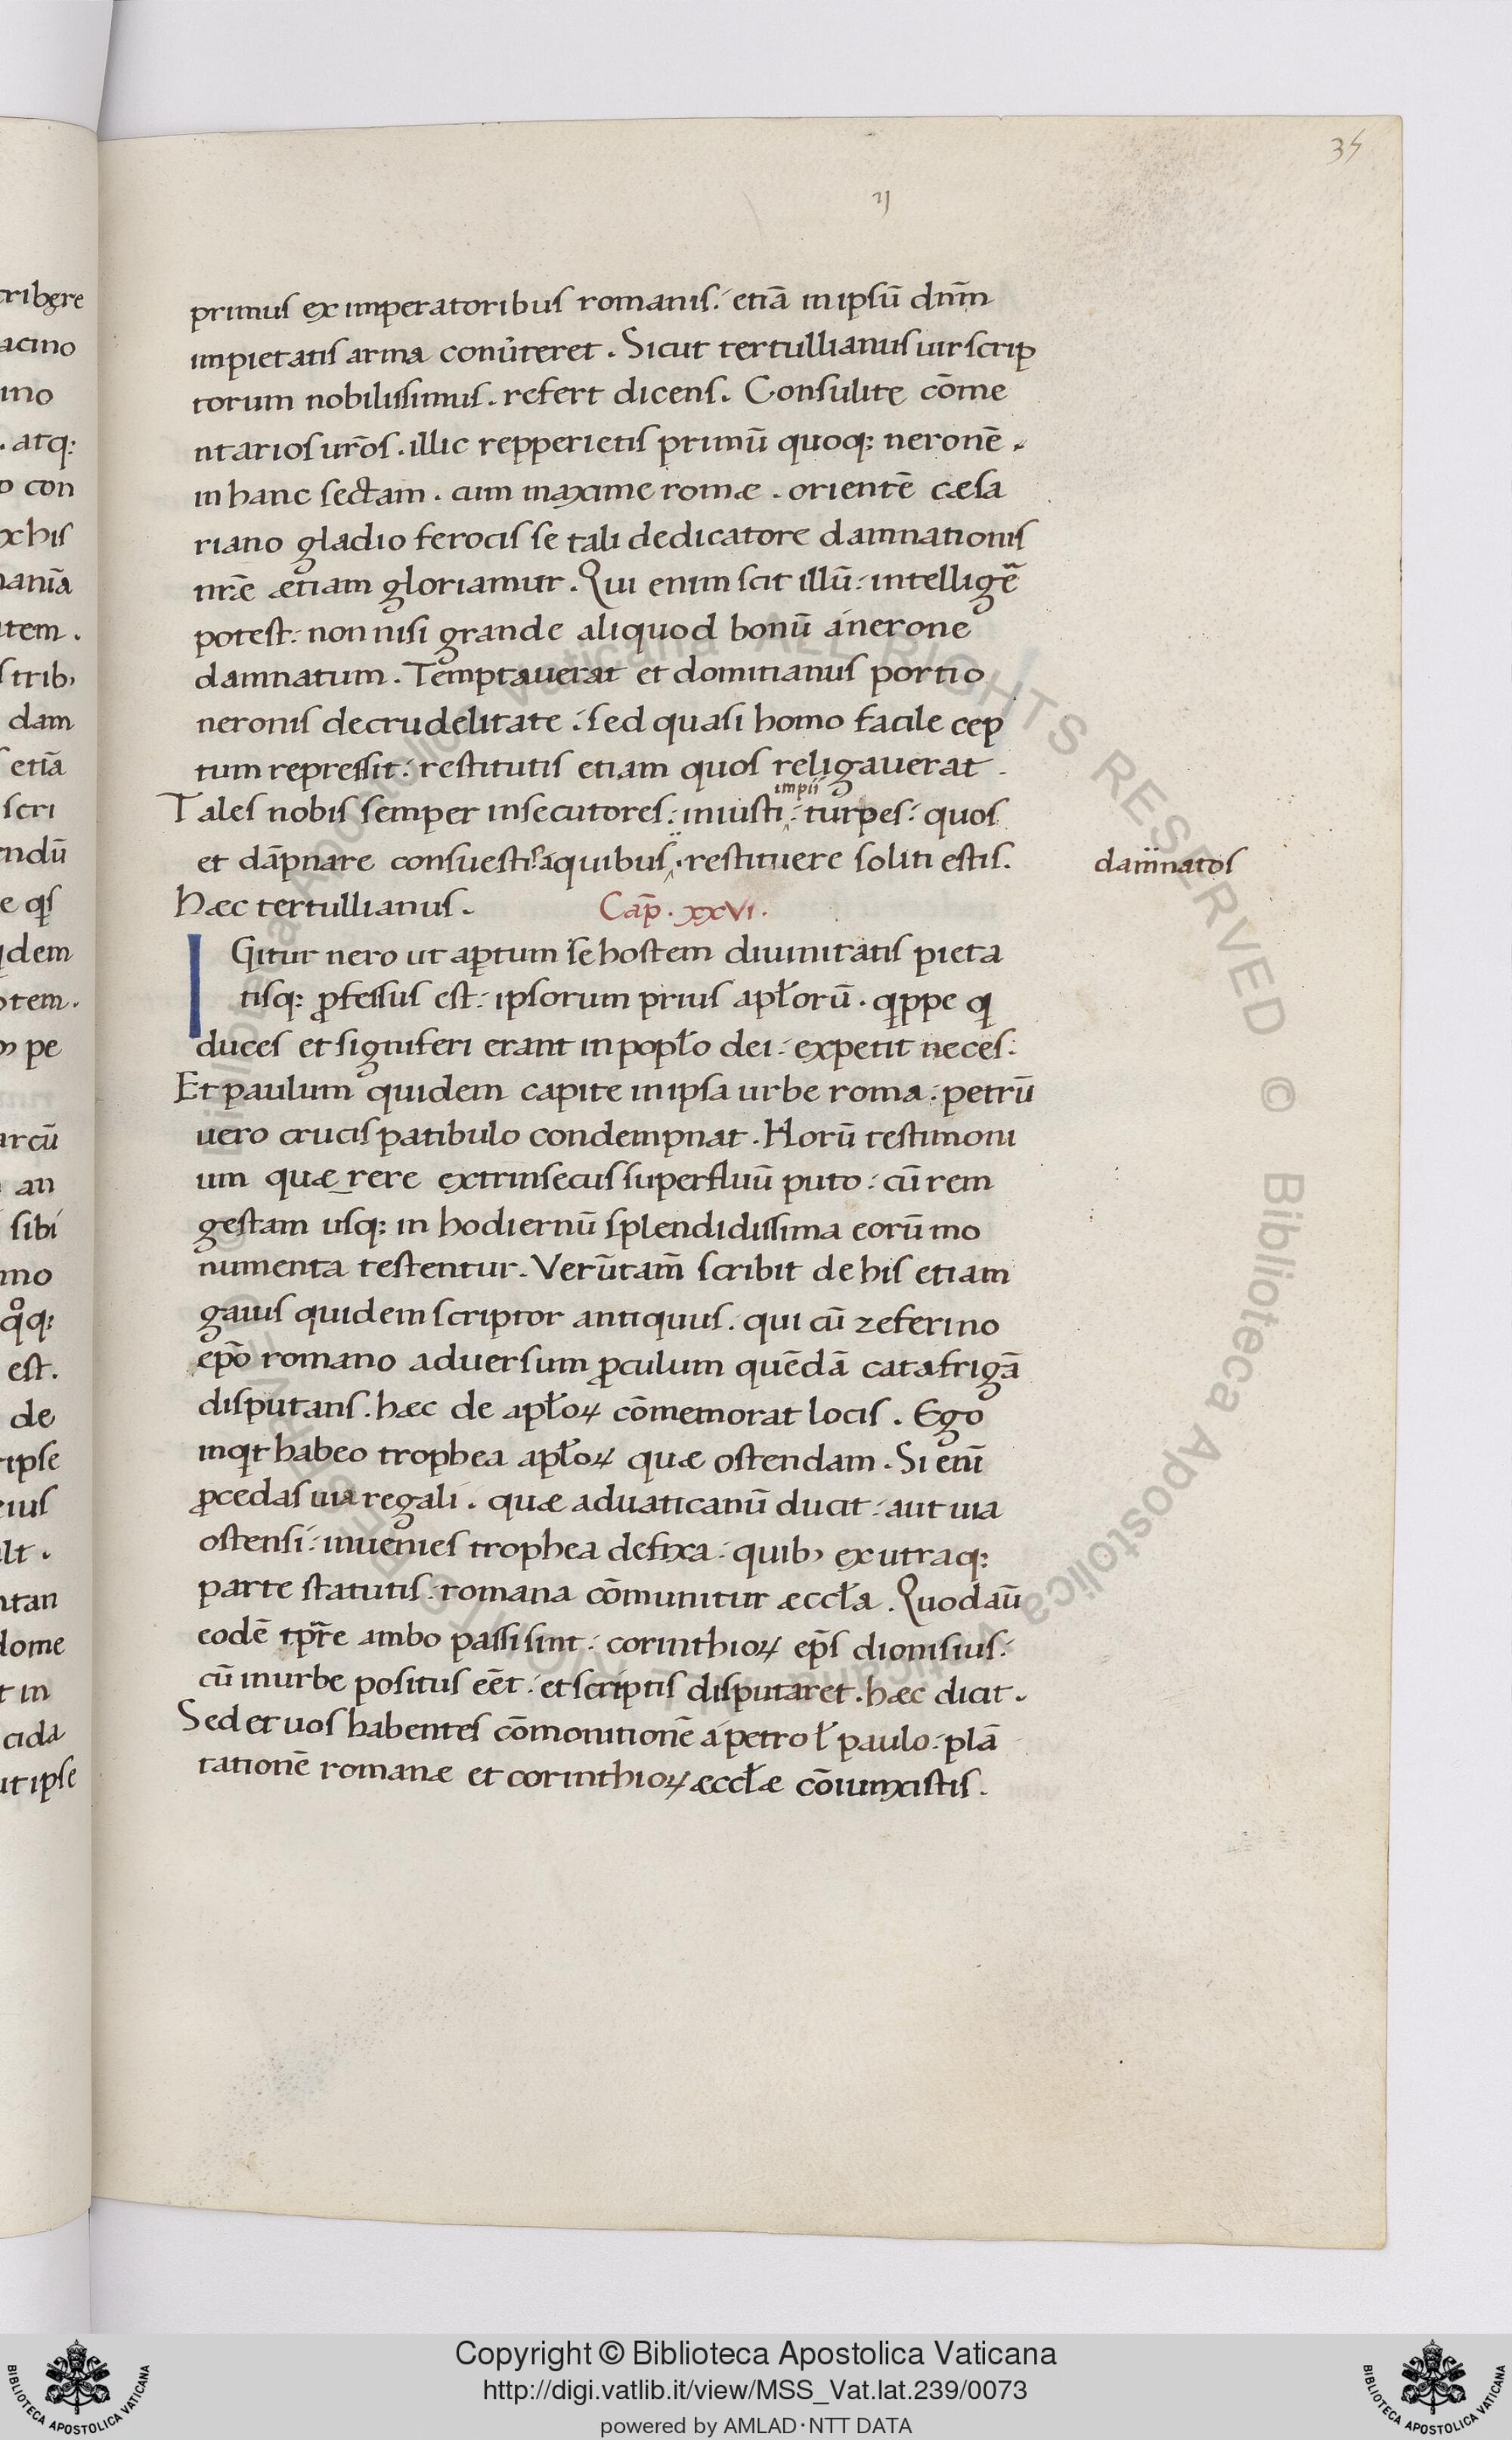 35
ij
primus ex imperatoribus romanis. etiā in ipsū dnm̄
impietatis arma conūteret. Sicut tertullianus uir scrip
torum nobilissimus. refert dicens. Consulite cōme
ntarios ur̄os. illic repperietis primū quoq; neronē.
in hanc sectam. cum maxime romæ. orientē cæsa
riano gladio ferocis se tali dedicatore damnationis
nr̄æ ætiam gloriamur. Qui enim scit illū. intelligē
potest. non nisi grande aliquod bonū á nerone
damnatum. Temptauerat et domitianus portio
neronis de crudelitate. sed quasi homo facile cep
tum repressit. restitutis etiam quos religauerat.
impii
Tales nobis semper insecutores. iniusti. turpes. quos
et dāpnare consuestis. á quibus. restituere soliti estis.
damnatos
hæc tertullianus. Cap̄. XXVI.
IGitur nero ut aptum se hostem diuinitatis pieta
tisq; ꝓfessus est. ipsorum prius apl̄orū. qippe qi
duces et signiferi erant in popl̄o dei. expetit neces.
Et paulum quidem capite in ipsa urbe roma. petrū
uero crucis patibulo condempnat. Horū testimoni
um quæ_rere extrinsecus superfluū puto. cū rem
gestam usq; in hodiernū splendidissima eorū mo
numenta testentur. Verūtam̄ scribit de his etiam
gaius quidem scriptor antiquus. qui cū zeferino
ep̄o romano aduersum ꝓculum quēdā catafrigā
disputans. hæc de apl̄oꝝ cōmemorat locis. Ego
inqit habeo trophea apl̄oꝝ quæ ostendam. Si enī
ꝓcedas uia regali. quæ ad uaticanū ducit. aut uia
ostensi. inuenies trophea defixa. quib; ex utraq;
parte statutis. romana cōmunitur æccl̄a. Quod aū
eodē tp̄re ambo passi sint. corinthioꝝ ep̄s dionisius.
cū in urbe positus eēt. et scriptis disputaret. hæc dicit.
Sed et uos habentes cōmonitionē á petro l̄ paulo. plā
tationē romanæ et corinthioꝝ æccl̄æ cōiunxistis.
Copyright © Biblioteca Apostolica Vaticana
http://digi.vatlib.it/view/MSS_Vat.lat.239/0073
powered by AMLAD·NTT DATA